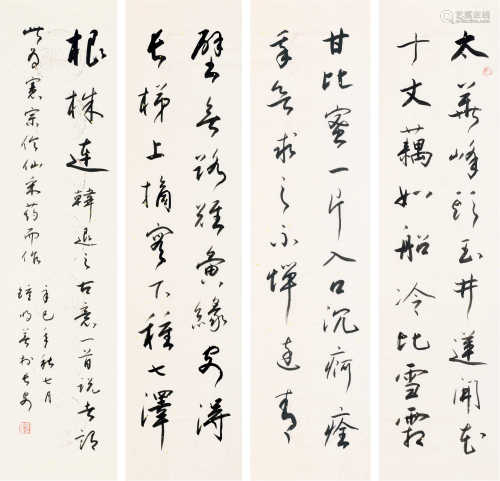 太華峰頭玉井蓮開花
十丈藕如船冷比雪霜
甘比蜜一片入口沉痾痊
我欲求之不憚遠青
壁無路難夤緣安得
長梯上摘實下種七澤
根株連 韓退之古意一首說者謂
此為憲宗信仙采药而作 辛巳年秋七月
於長安